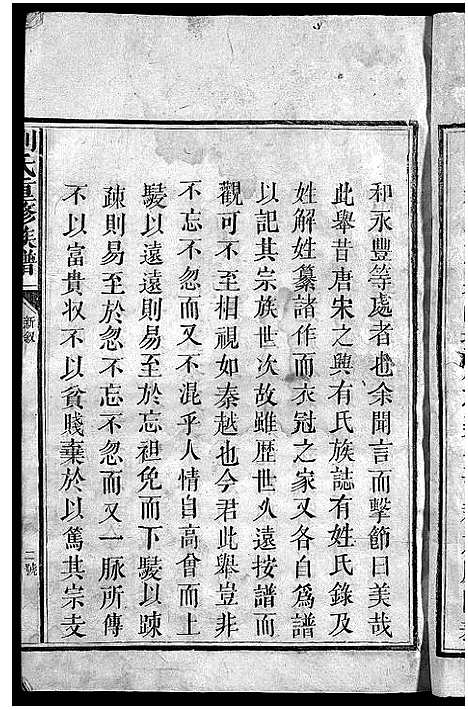 和永豐等處者也余聞言而擊節曰美哉
此舉昔唐宋之興有氏族誌有姓氏錄及
姓解姓纂諸作而衣冠之家又各自爲譜
以記其宗族世次故雖歷世久遠按譜而
觀可不至相視如秦越也今君此舉豈非
不忘不忽而不混乎人情自高曾而上
駸以遠遠則易至於忘袒免而下駸以踈
踈則易至於忽不忘不忽而又一脉所傳
不以富貴収不以貧賤棄於以篤其宗支
劉氏重修族譜
新敘
二號